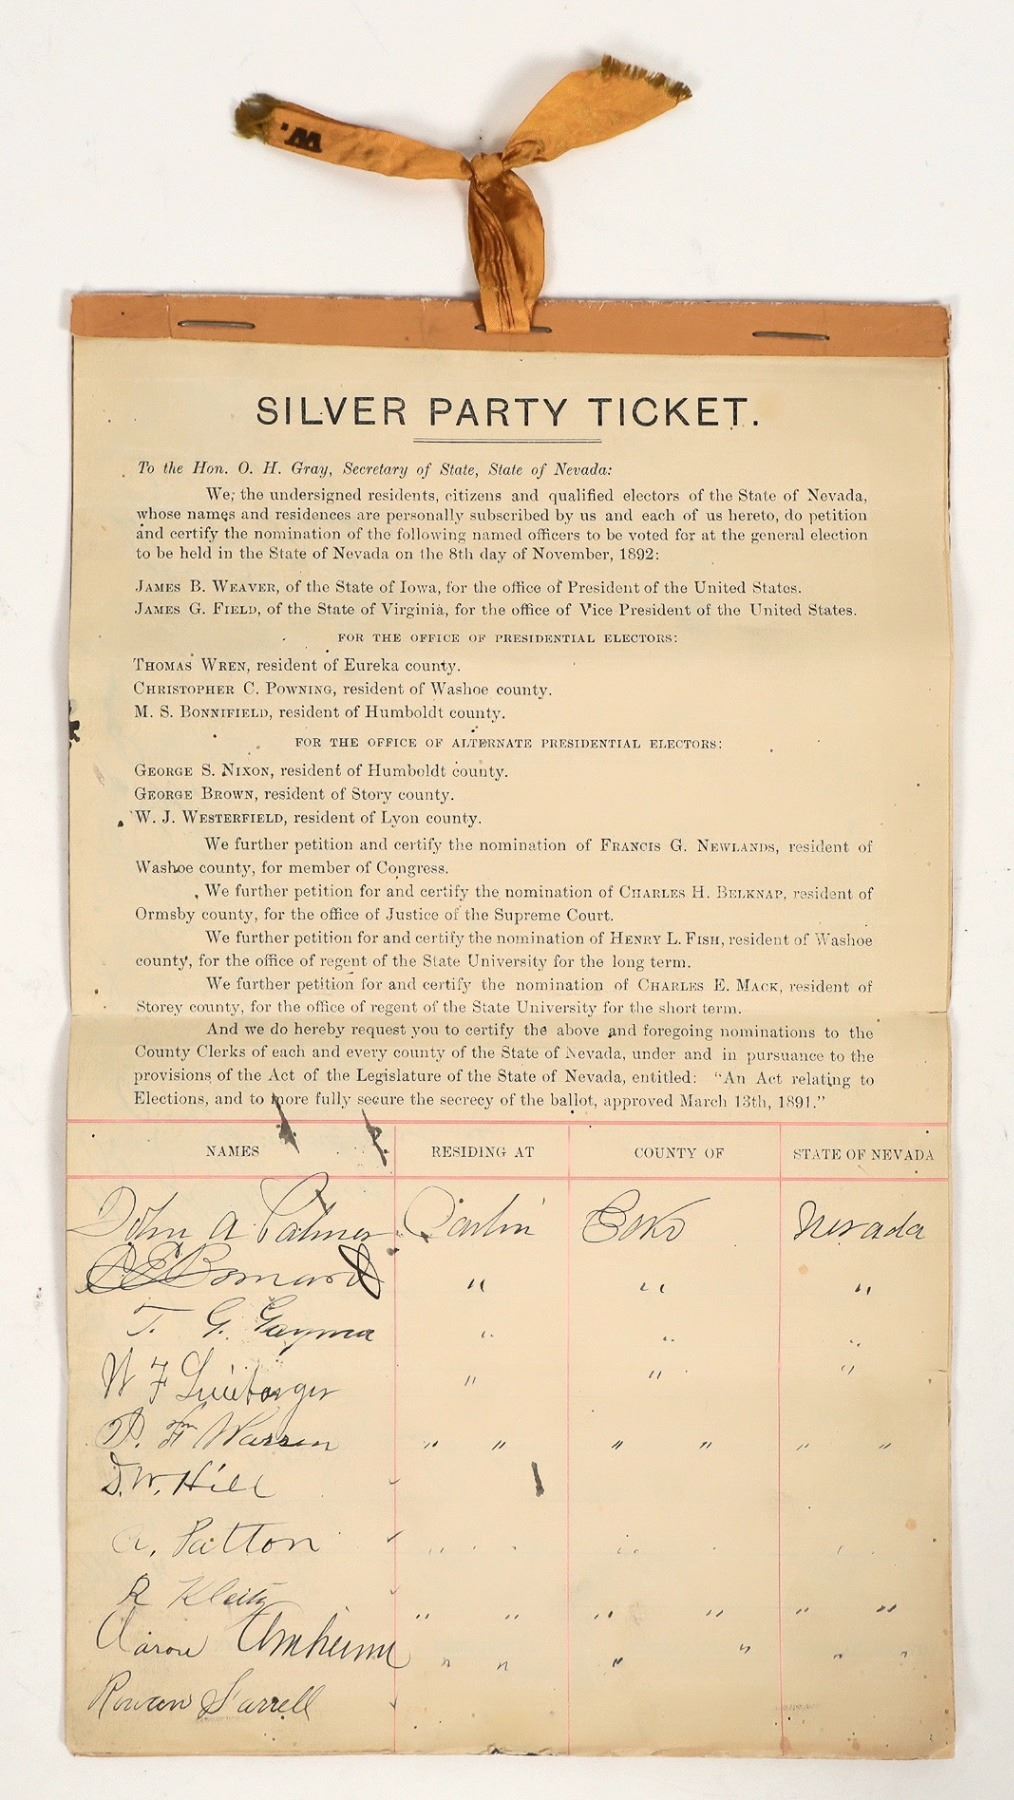 W.
SILVER PARTY TICKET.
To the Hon. O. H. Gray, Secretary of State, State of Nevada:
We, the undersigned residents, citizens and qualified electors of the State of Nevada,
whose names and residences are personally subscribed by us and each of us hereto, do petition
and certify the nomination of the following named officers to be voted for at the general election
to be held in the State of Nevada on the 8th day of November, 1892:
JAMES B. WEAVER, of the State of Iowa, for the office of President of the United States.
JAMES G. FIELD, of the State of Virginia, for the office of Vice President of the United States.
FOR THE OFFICE OF PRESIDENTIAL ELECTORS:
THOMAS WREN, resident of Eureka county.
CHRISTOPHER C. POWNING, resident of Washoe county.
M. S. BONNIFIELD, resident of Humboldt county.
FOR THE OFFICE OF ALTERNATE PRESIDENTIAL ELECTORS:
GEORGE S. NIXON, resident of Humboldt county.
GEORGE BROWN, resident of Story county.
W. J. WESTERFIELD, resident of Lyon county.
We further petition and certify the nomination of FRANCIS G. NEWLANDS, resident of
Washoe county, for member of Congress.
We further petition for and certify the nomination of CHARLES H. BELKNAP, resident of
Ormsby county, for the office of Justice of the Supreme Court.
We further petition for and certify the nomination of HENRY L. FISH, resident of Washoe
county, for the office of regent of the State University for the long term.
We further petition for and certify the nomination of CHARLES E. MACK, resident of
Storey county, for the office of regent of the State University for the short term.
And we do hereby request you to certify the above and foregoing nominations to the
County Clerks of each and every county of the State of Nevada, under and in pursuance to the
provisions of the Act of the Legislature of the State of Nevada, entitled: "An Act relating to
Elections, and to more fully secure the secrecy of the ballot, approved March 13th, 1891."
NAMES RESIDING AT COUNTY OF STATE OF NEVADA
John A Palmer Carlin Elko Nevada
" " "
T. G. " " "
W F " " "
P. F Warren " " " " " "
D. W. Hill
A. Patton " " "
R " " " " " "
Aaron " " " " " "
Rowan Farrell